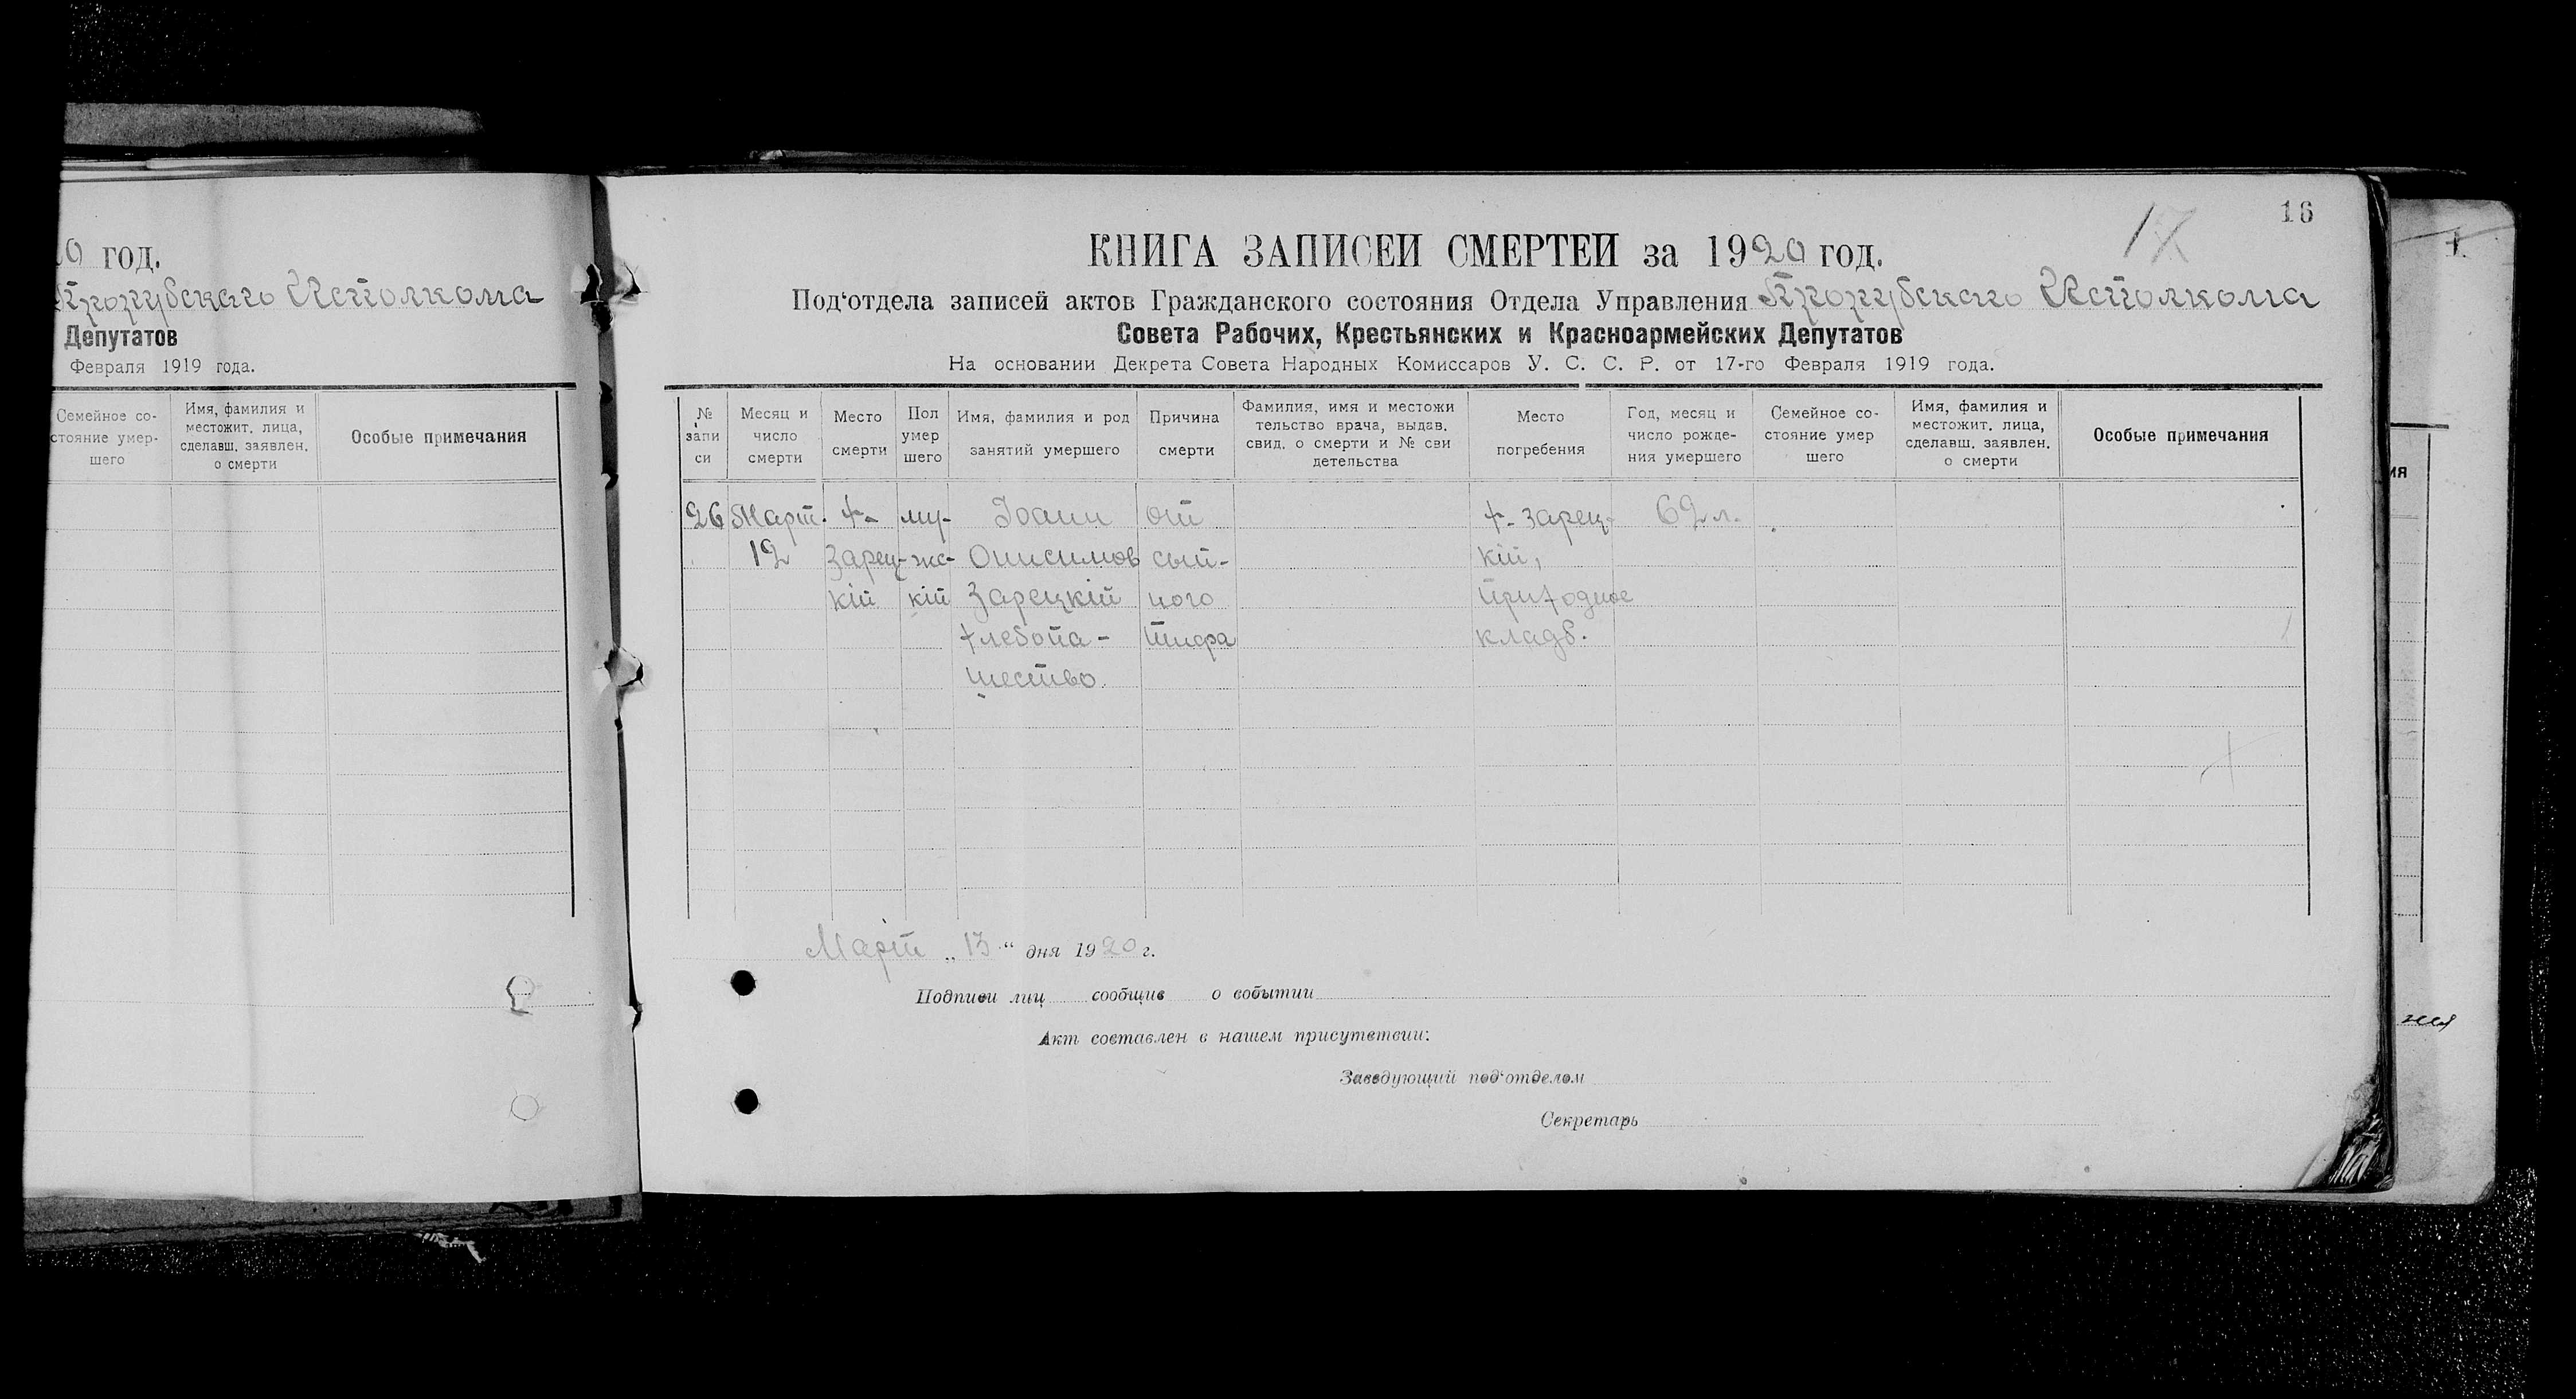 0 год.
Прорубскаго Исполкома
Депутатов
Февраля 1919 года.
Семейное со-
стояние умер-
шего
Имя, фамилия и
местожит. лица,
сделавш. заявлен.
о смерти
Особые примечания
16
17
КНИГА ЗАПИСЕЙ СМЕРТЕЙ за 1920 год.
Под‘отдела записей актов Гражданского состояния Отдела Управления Прорубскаго Исполкома
Совета Рабочих, Крестьянских и Красноармейских Депутатов
На основании Декрета Совета Народных Комиссаров У. С. С. Р. от 17-го Февраля 1919 года.
№
запи
си
Месяц и
число
смерти
Место
смерти
Пол
умер
шего
Имя, фамилия и род
занятий умершего
Причина
смерти
Фамилия, имя и местожи
тельство врача, выдав.
свид. о смерти и № сви
детельства
Место
погребения
Год, месяц и
число рожде-
ния умершего
Семейное со-
стояние умер
шего
Имя, фамилия и
местожит. лица,
сделавш. заявлен.
о смерти
Особые примечания
26
Март.
12
х-
Зарец-
кій
му-
жс-
кій
Іоанн
Онисимов
Зарецкій
хлебопа-
шество.
от
сып-
ного
тифа
х- зарец-
кій,
приходное
кладб.
62 л.
Март „13“ дня 1920 г.
Подписи лиц сообщив о событии
Акт составлен в нашем присутствии:
Заведующий под‘отделом
Секретарь
ия